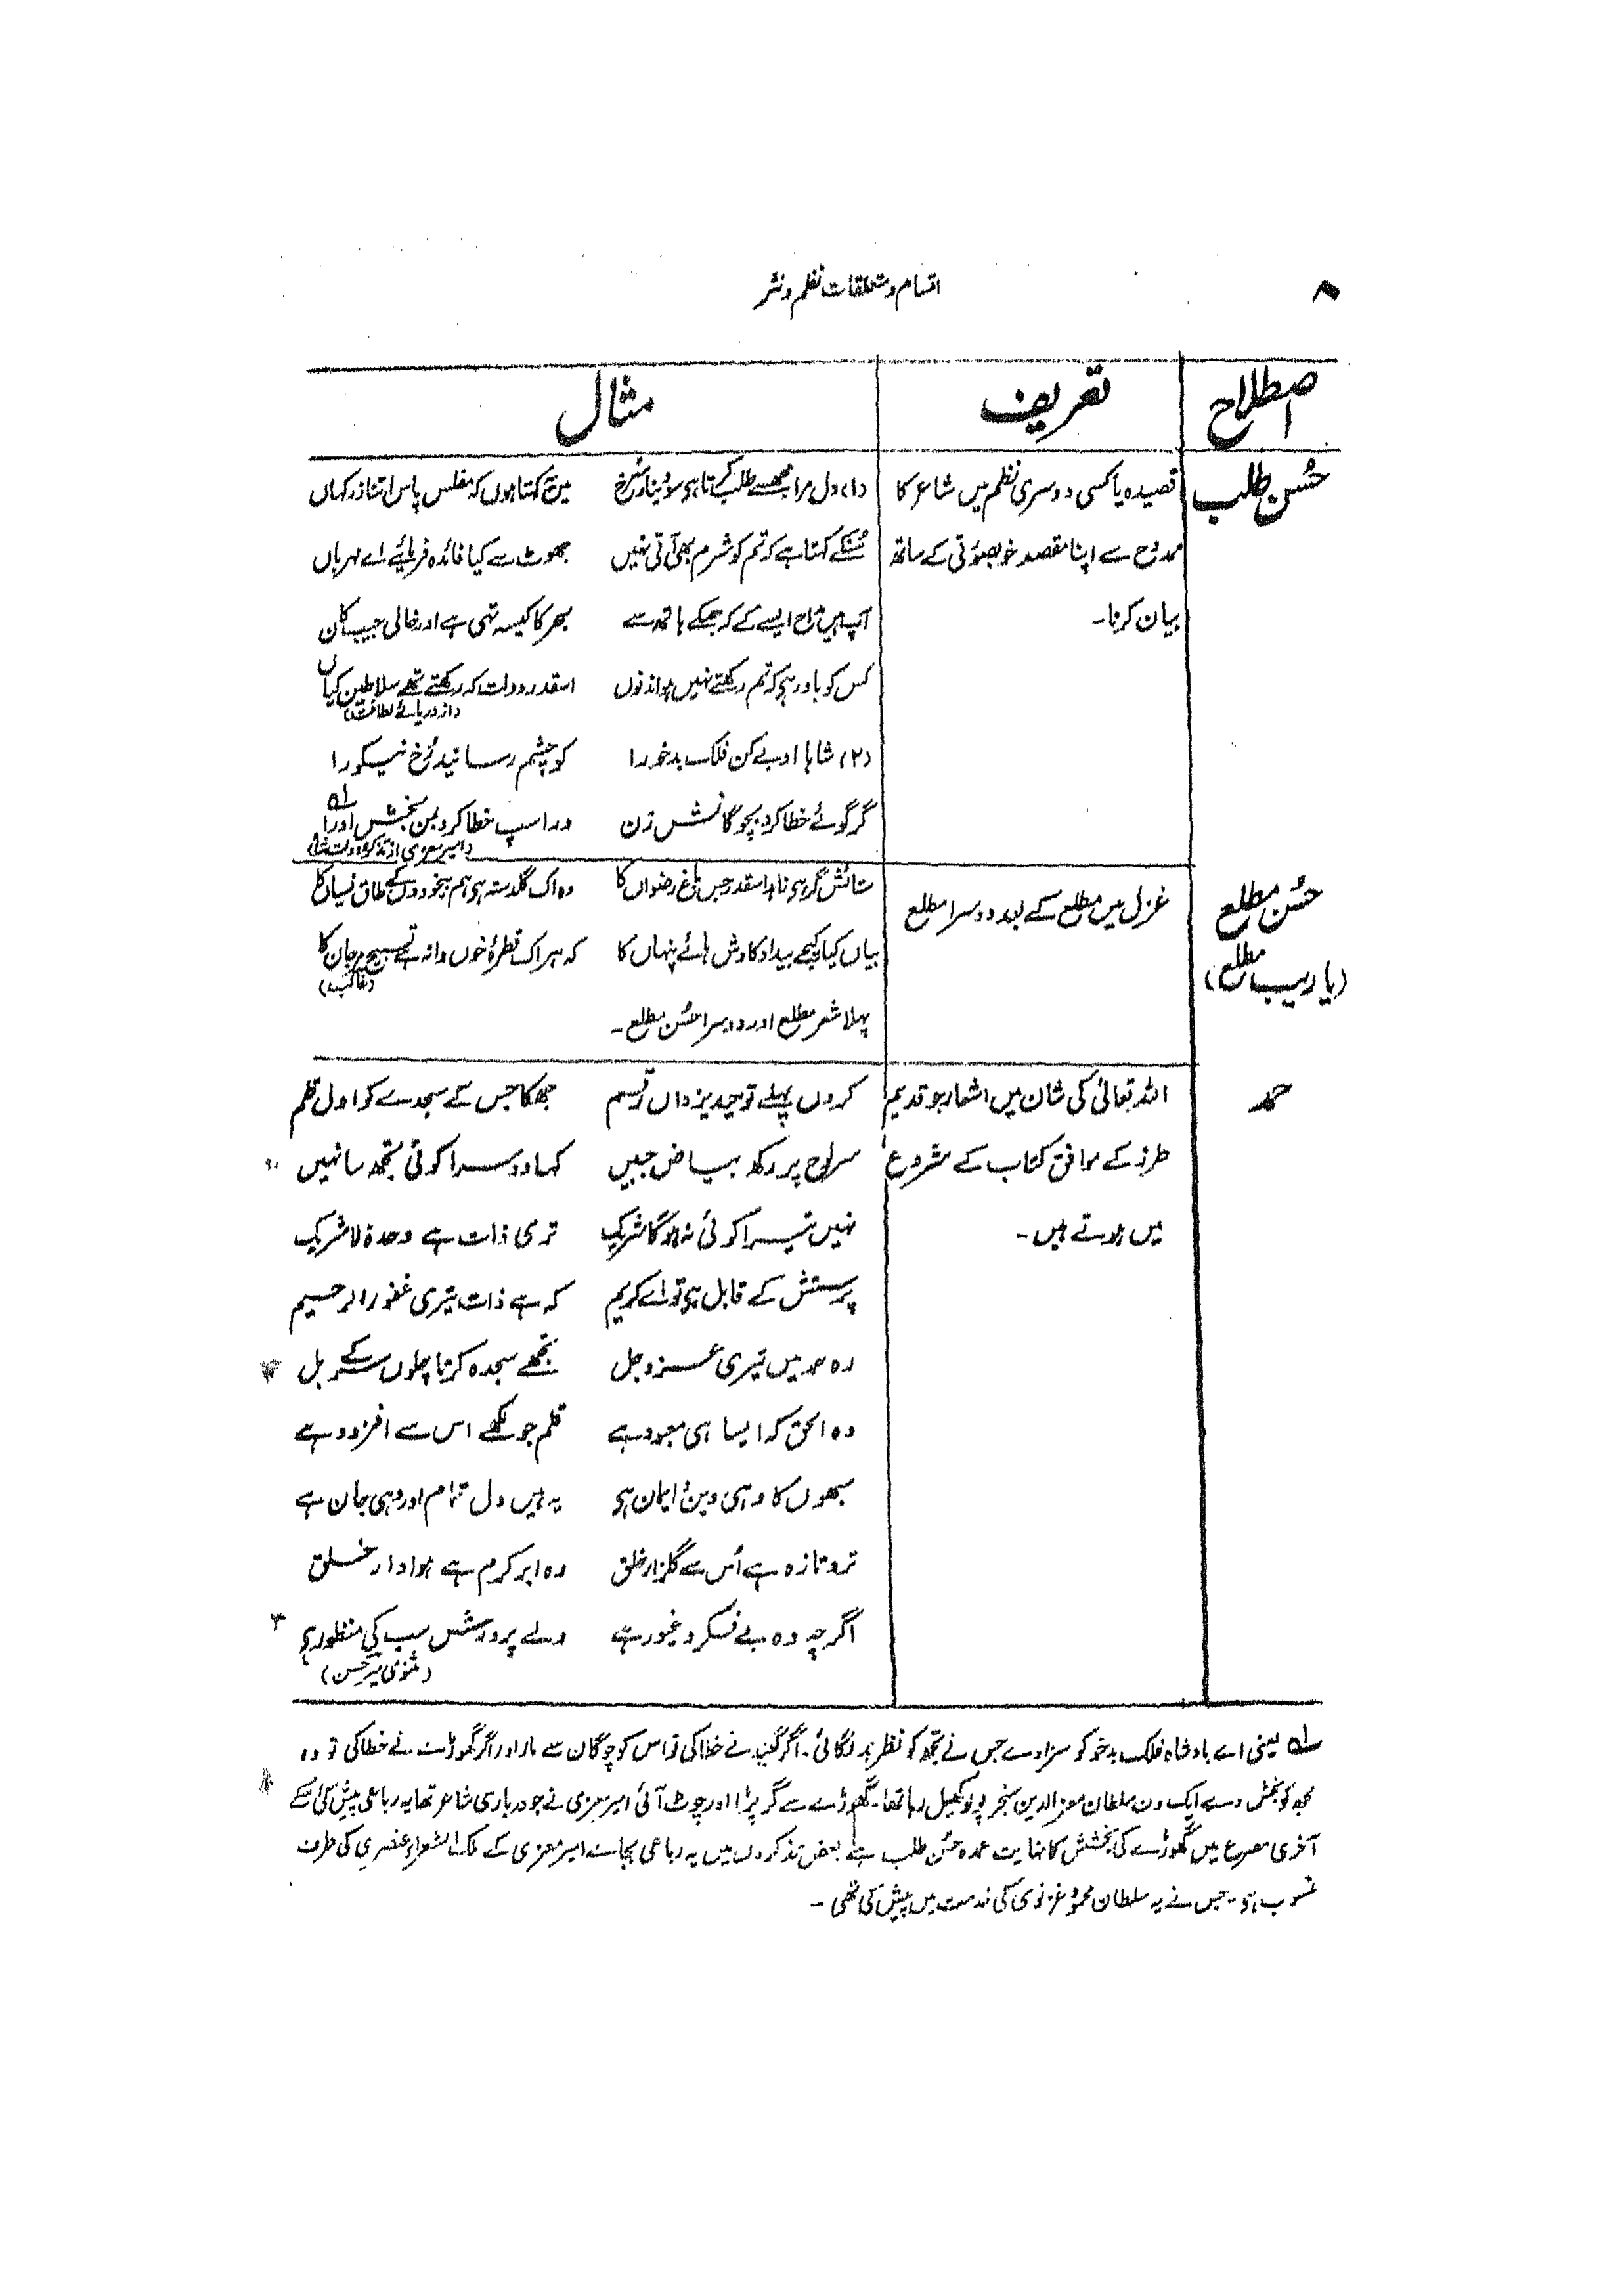 ۸
اقسام و متعلقات نظم و نثر
اصطلاح تعریف مثال
حُسنِ طلب
قصیدہ یا کسی دوسری نظم میں شاعر کا
ممدوح سے اپنا مقصد خوبصورتی کے ساتھ
بیان کرنا۔
(۱) دل مرا مجھسے طلب کرتا ہو سو دینار سُرخ میں یہ کہتا ہوں کہ مفلس پاس اتنا زر کہاں
سُنکے کہتا ہے کہ تم کو شرم بھی آتی نہیں جھوٹ سے کیا فائدہ فرمائیے اے مہرباں
آپ ہیں مداح ایسے کے کہ جسکے ہاتھ سے بحر کا کیسہ تہی ہے اور خالی جیبِ کان
کس کو باور ہو کہ تم رکھتے نہیں ہو اندنوں اسقدر دولت کہ رکھتے تھے سلاطینِ کیاں
(از دریائے لطافت)
(۲) شاہا ادبے کن فلک بدخو را کو چشم رسانید رُخِ نیکو را
گر گوئے خطا کرد بچوگانش زن ور اسپ خطا کرد بمن بخش اورا ؎۱
(امیر معزی از تذکرہ دولت شاہ)
حُسنِ مطلع
(یا زیب مطلع)
غزل میں مطلع کے بعد دوسرا مطلع
ستائش گر ہو زاہد اسقدر جس باغِ رضواں کا وہ اک گلدستہ ہو ہم بیخودوں کے طاقِ نسیاں کا
بیاں کیا کیجیے بیداد کاوش ہائے پنہاں کا کہ ہر اک قطرۂ خوں دانہ ہے تسبیحِ مرجاں کا
(غالب)
پہلا شعر مطلع اور دوسرا حُسنِ مطلع۔
حمد
اللہ تعالیٰ کی شان میں اشعار جو قدیم
طرز کے موافق کتاب کے شروع
میں ہوتے ہیں۔
کروں پہلے توحیدِ یزداں رقم جھکا جس کے سجدے کو اول قلم
سرِ لوح پر رکھ بیاضِ جبیں کہا دوسرا کوئی تجھ سا نہیں
نہیں تیرا کوئی نہ ہوگا شریک تری ذات ہے وحدہٗ لا شریک
پرستش کے قابل ہو تو اے کریم کہ ہے ذات تیری غفور الرحیم
رہ حمد میں تیری عزوجل تجھے سجدہ کرتا چلوں سر کے بل
وہ الحق کہ ایسا ہی معبود ہے قلم جو لکھے اس سے افزود ہے
سبھوں کا وہی دین و ایمان ہو یہ ہیں دل تمام اور وہی جان ہے
تروتازہ ہے اُس سے گلزارِ خلق وہ ابرِ کرم ہے ہوا دارِ خلق
اگرچہ وہ بے فکر و غیور ہے ولے پرورش سب کی منظور ہو
(مثنوی میر حسن)
؎۱ یعنی اے بادشاہ فلک بدخو کو سزا دے جس نے تجھ کو نظرِ بد لگائی۔ اگر گیند نے خطا کی تو اس کو چوگان سے مار اور اگر گھوڑے نے خطا کی تو وہ
مجھ کو بخش دے ایک دن سلطان معز الدین سنجر پولو کھیل رہا تھا۔ گھوڑے سے گر پڑا اور چوٹ آئی امیر معزی نے جو درباری شاعر تھا یہ رباعی پیش کی
آخری مصرع میں گھوڑے کی بخشش کا نہایت عمدہ حُسنِ طلب ہے بعض تذکروں میں یہ رباعی بجائے امیر معزی کے ملک الشعراء عنصری کی طرف
منسوب ہو۔ جس نے یہ سلطان محمود غزنوی کی خدمت میں پیش کی تھی۔